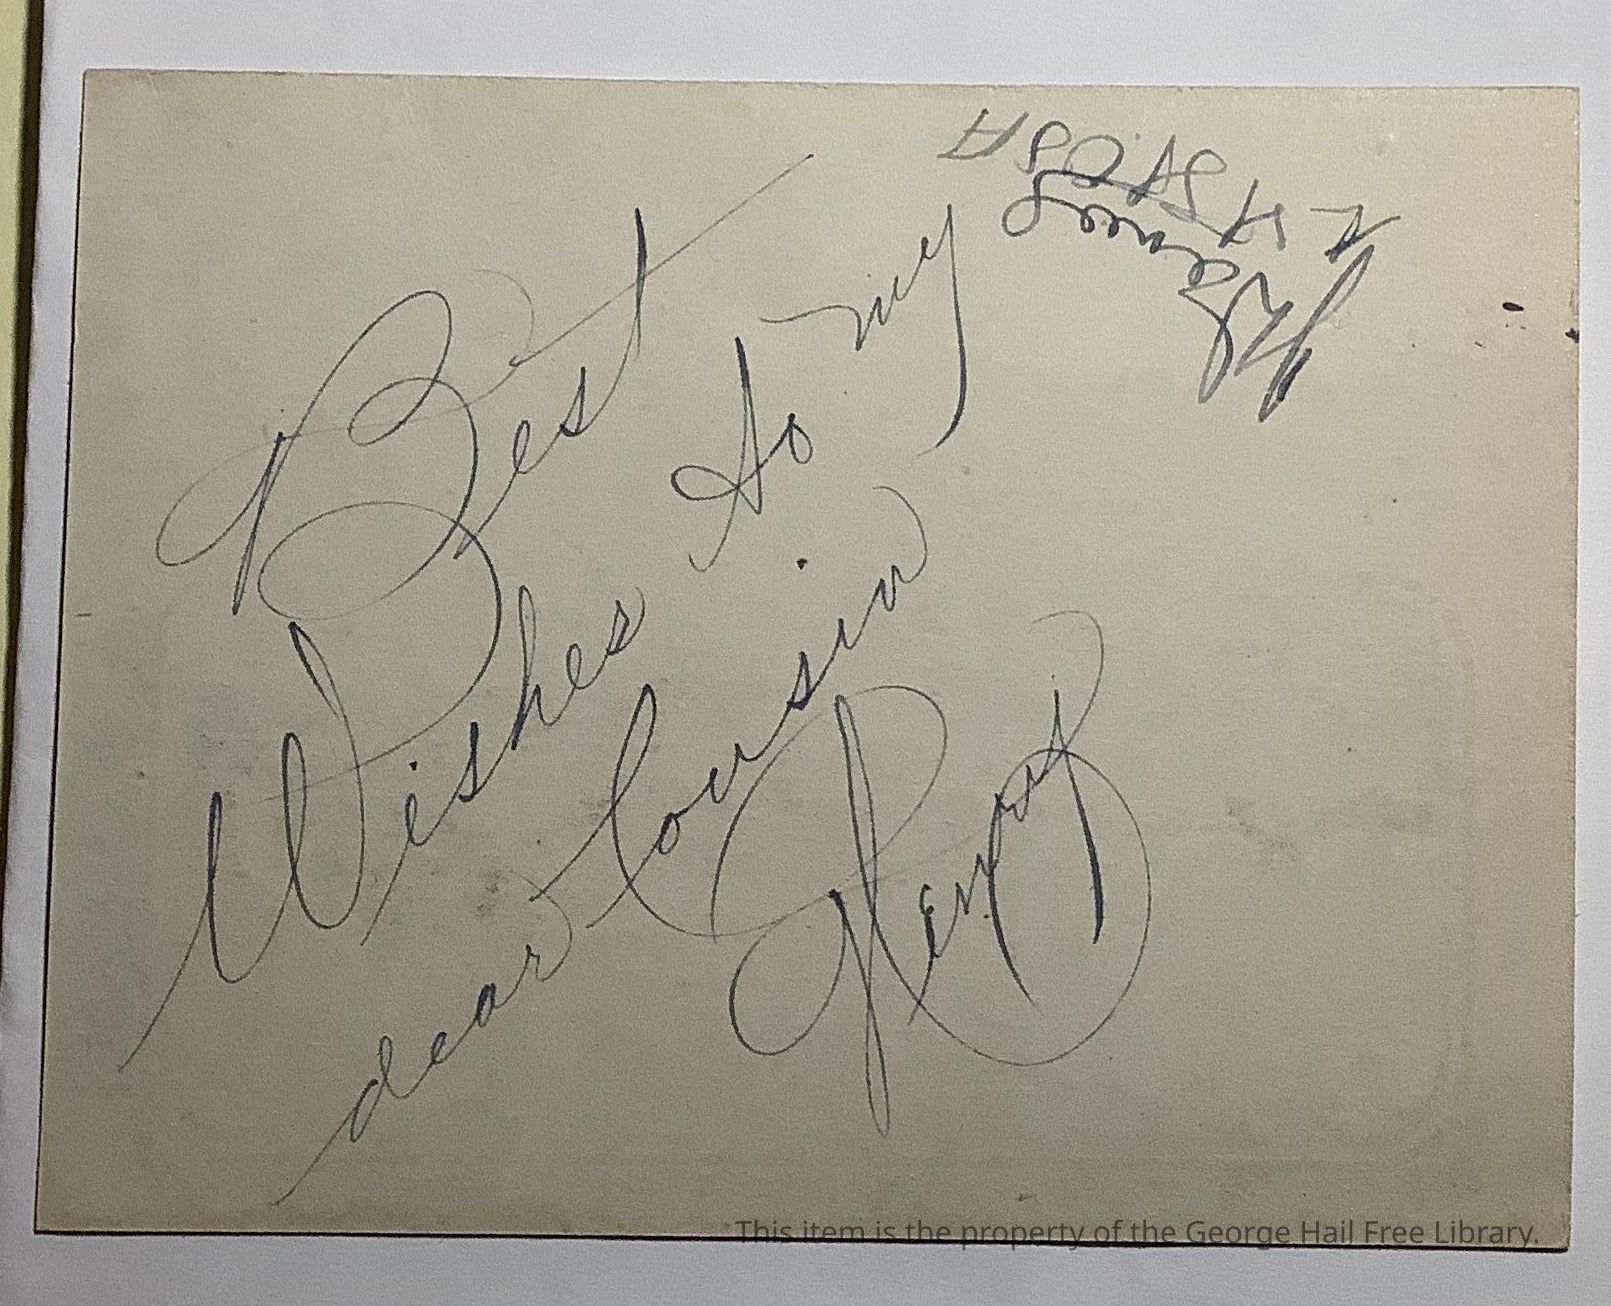 Best
Wishes to my
dear Cousin
Henry
This item is the property of the George Hail Free Library.